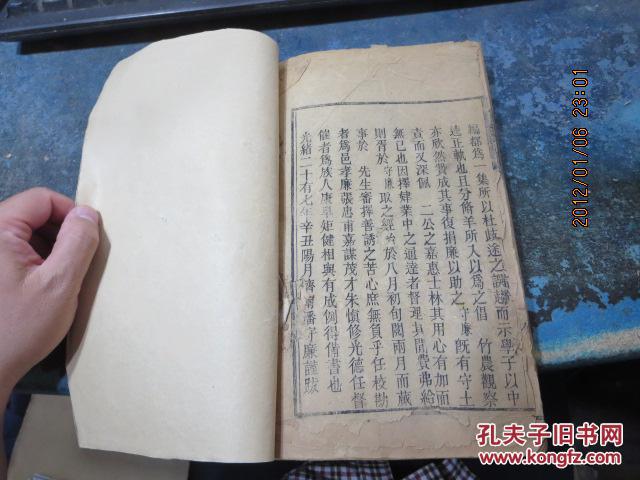 編都爲一集所以杜歧途之調而示學子以中
逵正軌也且分餘羊所入以爲之倡 竹農觀察
亦欣然贊成其事復捐廉以助之守廉旣有守土
責而又深佩 二公之嘉惠士林其用心有加而
無已也因擇肄業中之通達者督理其間費弗給
則胥於守廉取之經始於八月初旬閱兩月而蕆
事於 先生審擇善誘之苦心庶無負乎任校勘
者爲邑孝廉張忠甫嘉謀茂才朱愼修光德任督
催者爲族人庚阜矩健相與有成例得備書也
光緒二十有七年辛丑陽月濟甯潘守廉謹跋
2012/01/06 23:01
孔夫子旧书网
www.kongfz.com